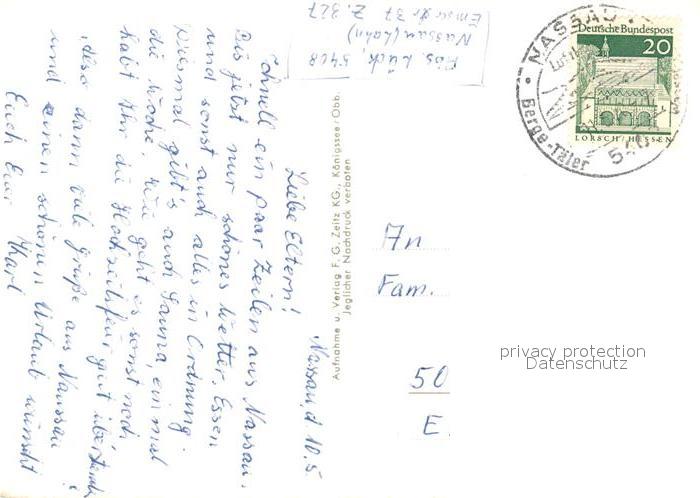 Nassau, d 10.5
Liebe Eltern!
Schnell ein paar Zeilen aus Nassau.
Bis jetzt nur schönes Wetter, Essen
und sonst auch alles in Ordnung.
2x mal gibt's auch Sauna, einmal
die Woche. Wie geht es sonst noch
habt Ihr die Hochzeitsfeier gut überstanden?
Also dann viele Grüße aus Nassau
und einen schönen Urlaub wünscht
Euch Euer Karl
5408
Nassau (Lahn)
Emser Str 37 Z. 327
Aufnahme u. Verlag F. G. Zeitz KG., Königssee/Obb.
Jeglicher Nachdruck verboten
NASSAU
Berge-Täler
540
Deutsche Bundespost
20
LORSCH / HESSEN
An
Fam.
50
E
privacy protection
Datenschutz